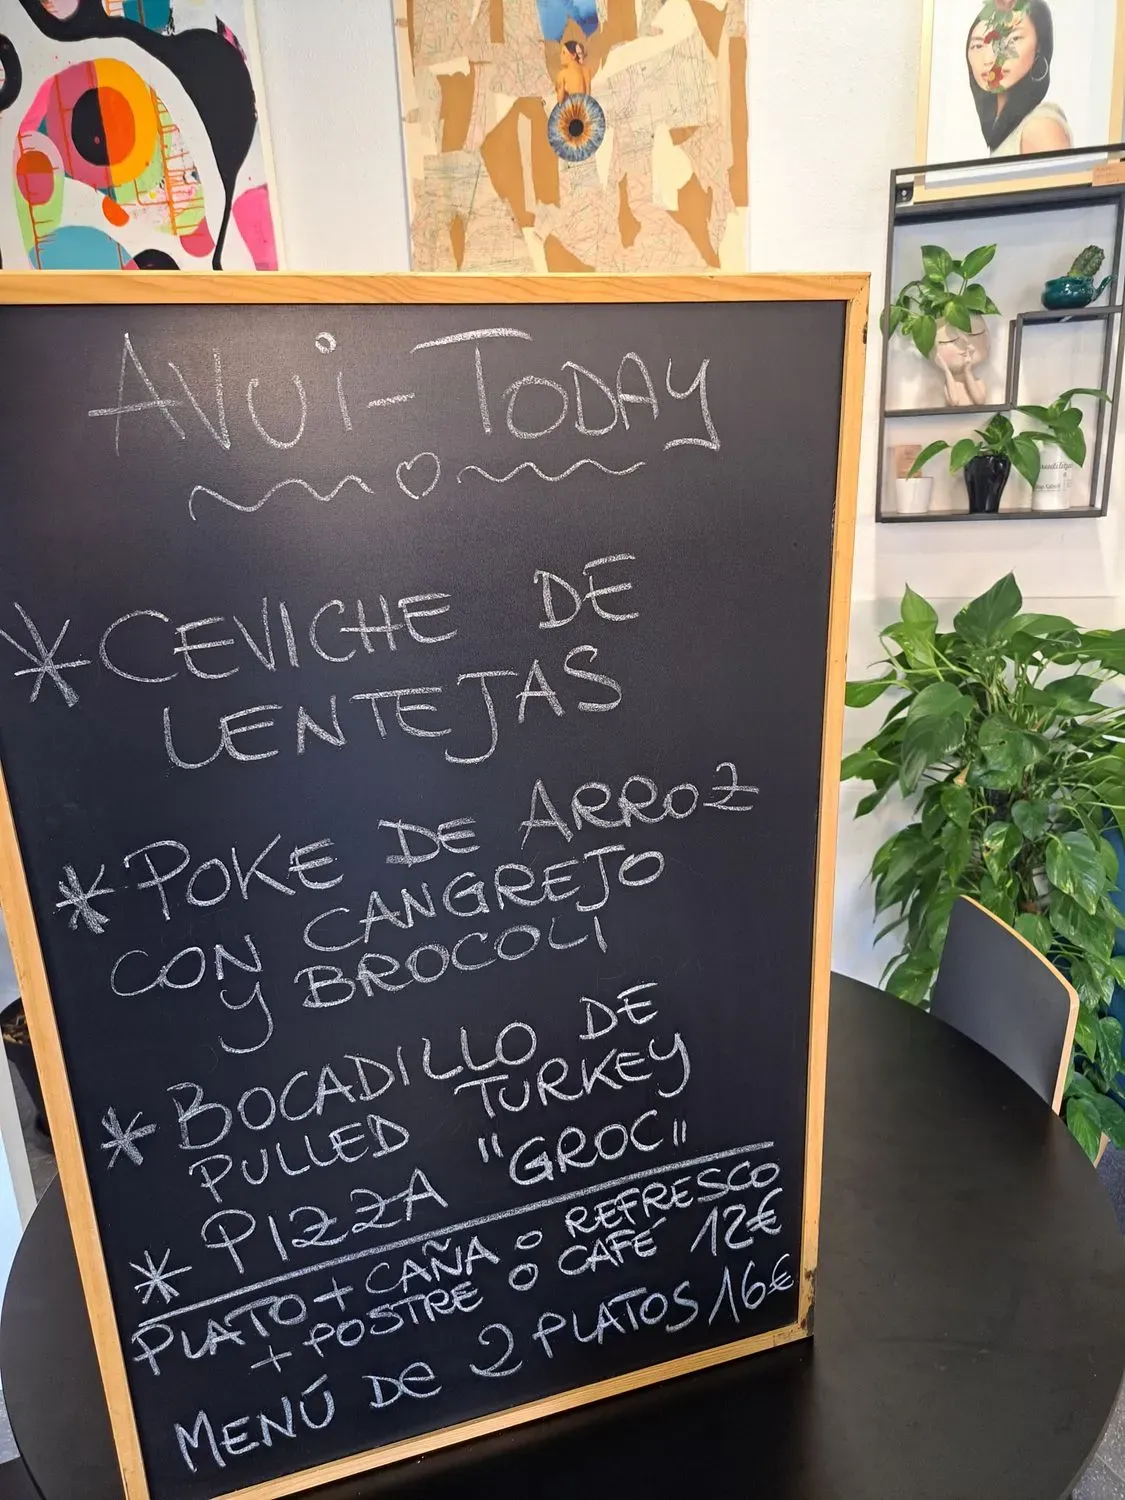 AVUI - TODAY
* CEVICHE DE
LENTEJAS
* POKE DE ARROZ
CON CANGREJO
Y BROCOLI
* BOCADILLO DE
PULLED TURKEY
* PIZZA "GROC"
PLATO + CAÑA O REFRESCO
+ POSTRE O CAFÉ 12€
MENÚ DE 2 PLATOS 16€